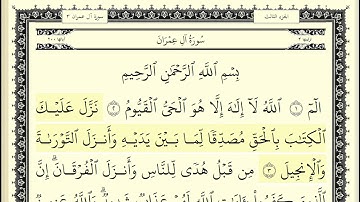 الجزء الثالث
سورة آل عمران ٣
سُورَةُ آلِ عِمْرَانَ
بِسْمِ اللَّهِ الرَّحْمَٰنِ الرَّحِيمِ
الٓمٓ ۝١ ٱللَّهُ لَآ إِلَٰهَ إِلَّا هُوَ ٱلْحَيُّ ٱلْقَيُّومُ ۝٢ نَزَّلَ عَلَيْكَ
ٱلْكِتَٰبَ بِٱلْحَقِّ مُصَدِّقًا لِّمَا بَيْنَ يَدَيْهِ وَأَنزَلَ ٱلتَّوْرَىٰةَ
وَٱلْإِنجِيلَ ۝٣ مِن قَبْلُ هُدًى لِّلنَّاسِ وَأَنزَلَ ٱلْفُرْقَانَ ۗ إِنَّ